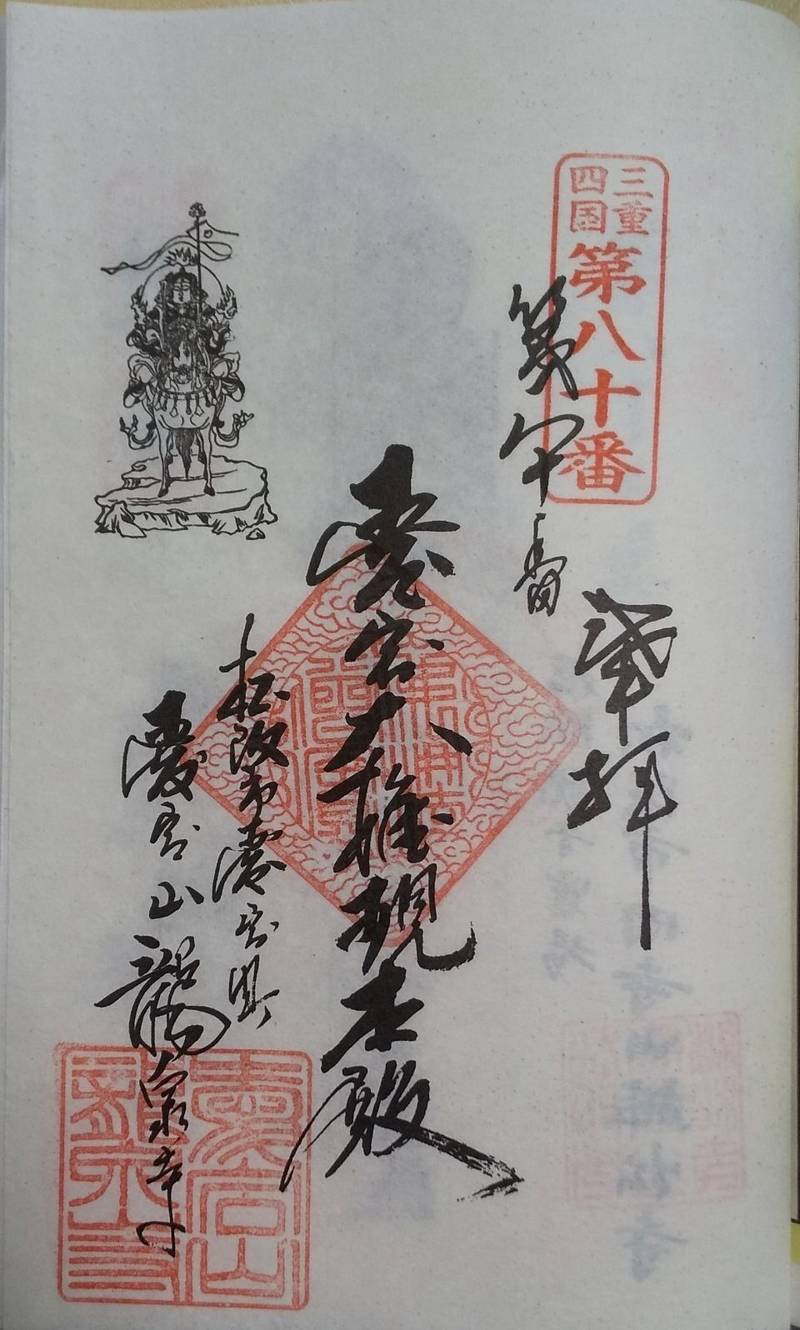 三重
四国
第八十番
第八十番
奉拝
愛宕大権現本殿
松阪市愛宕町
愛宕山龍泉寺
愛宕山
龍泉寺